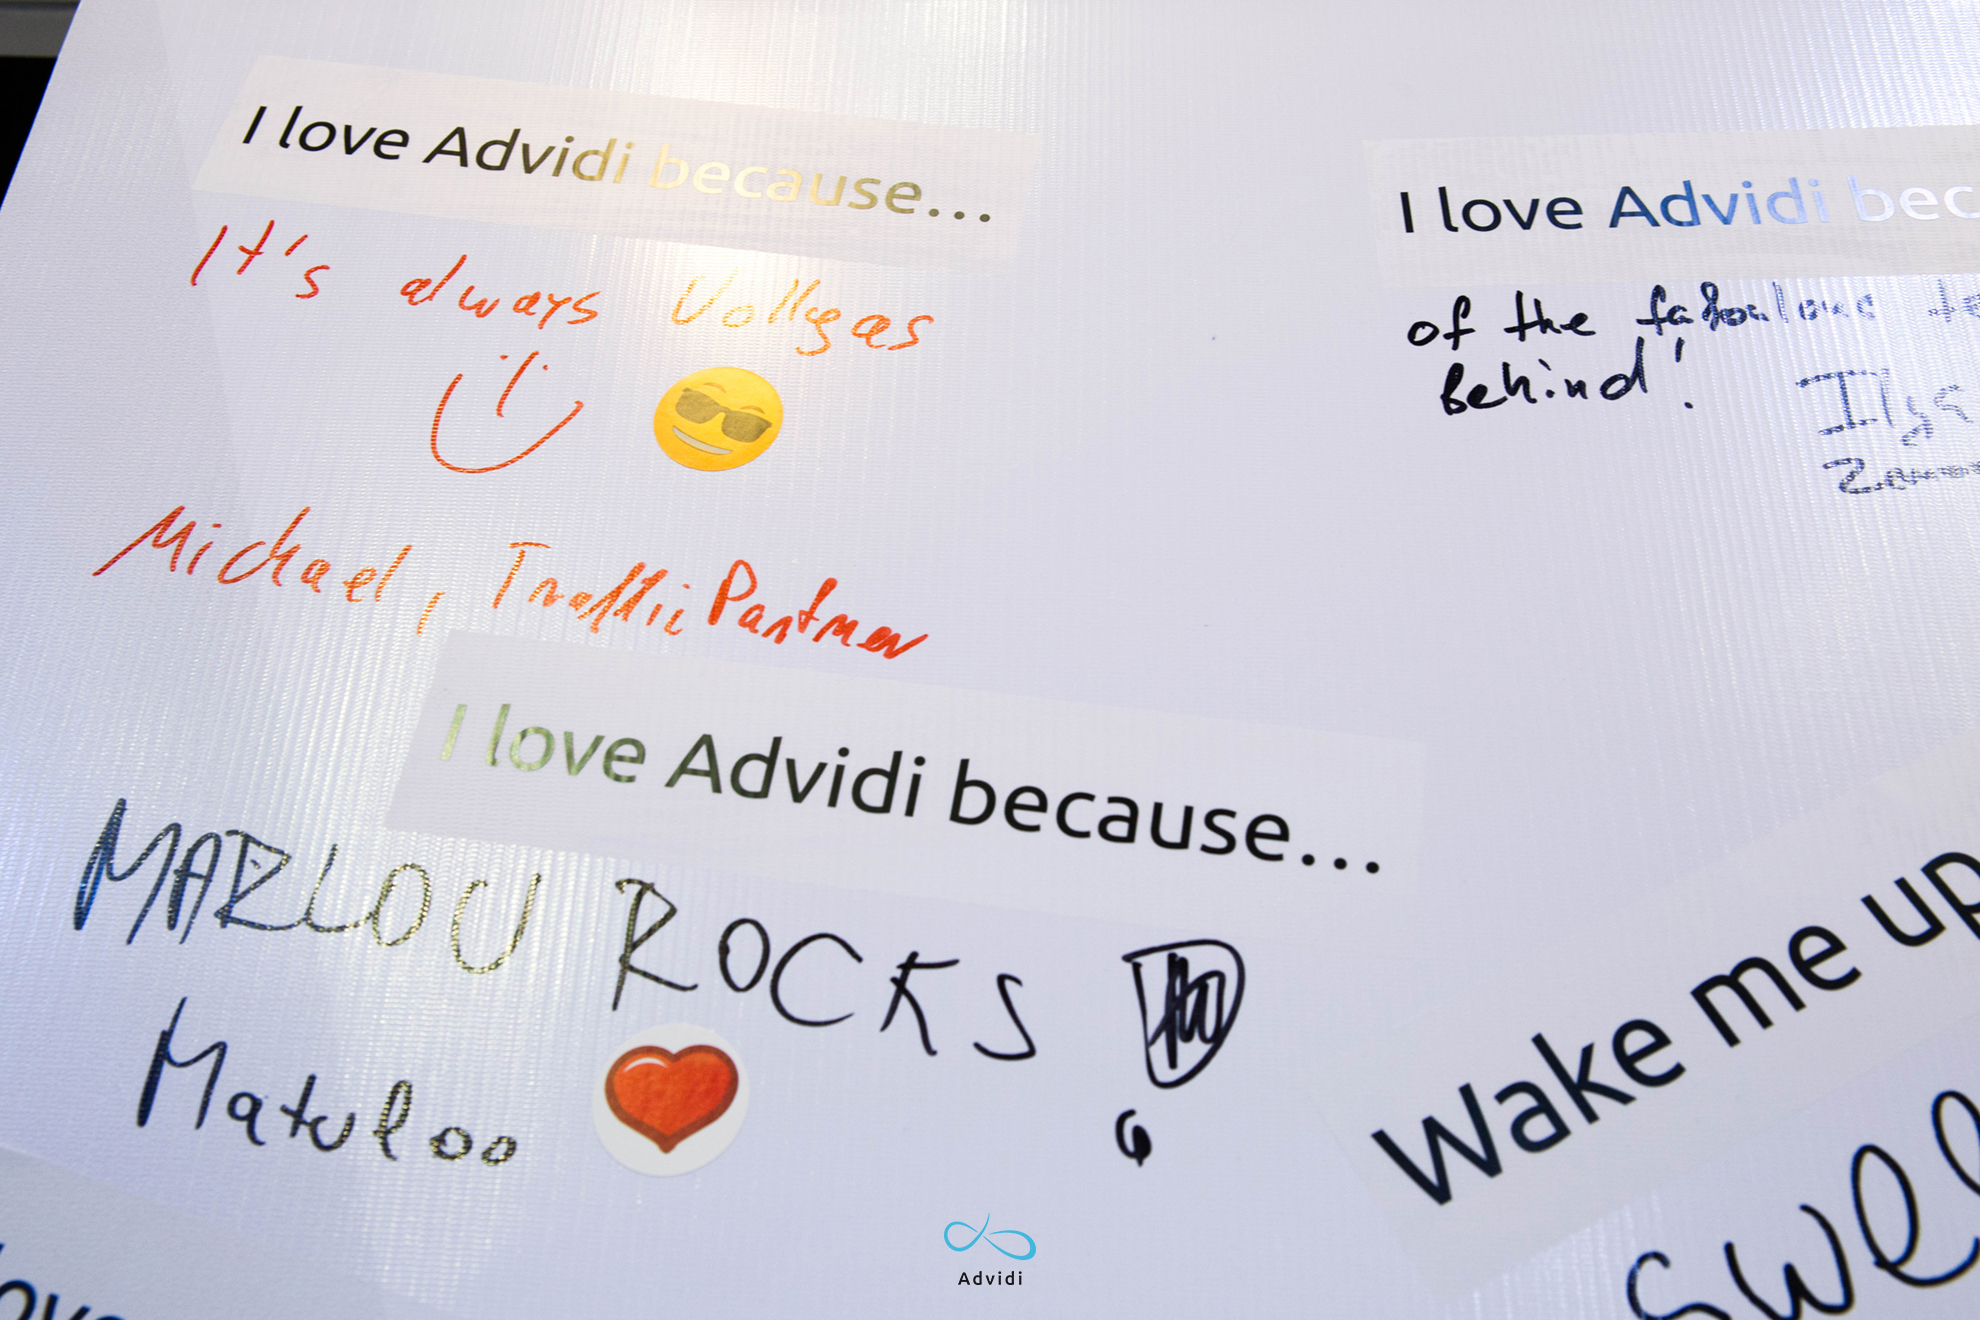 I love Advidi because...
It's always Vollgas
Michael, TrafficPartner
I love Advidi bec
of the fabulous te
behind!
Ilya
I love Advidi because...
MARLOU ROCKS
Matuloo
Wake me up
swee
love
Advidi